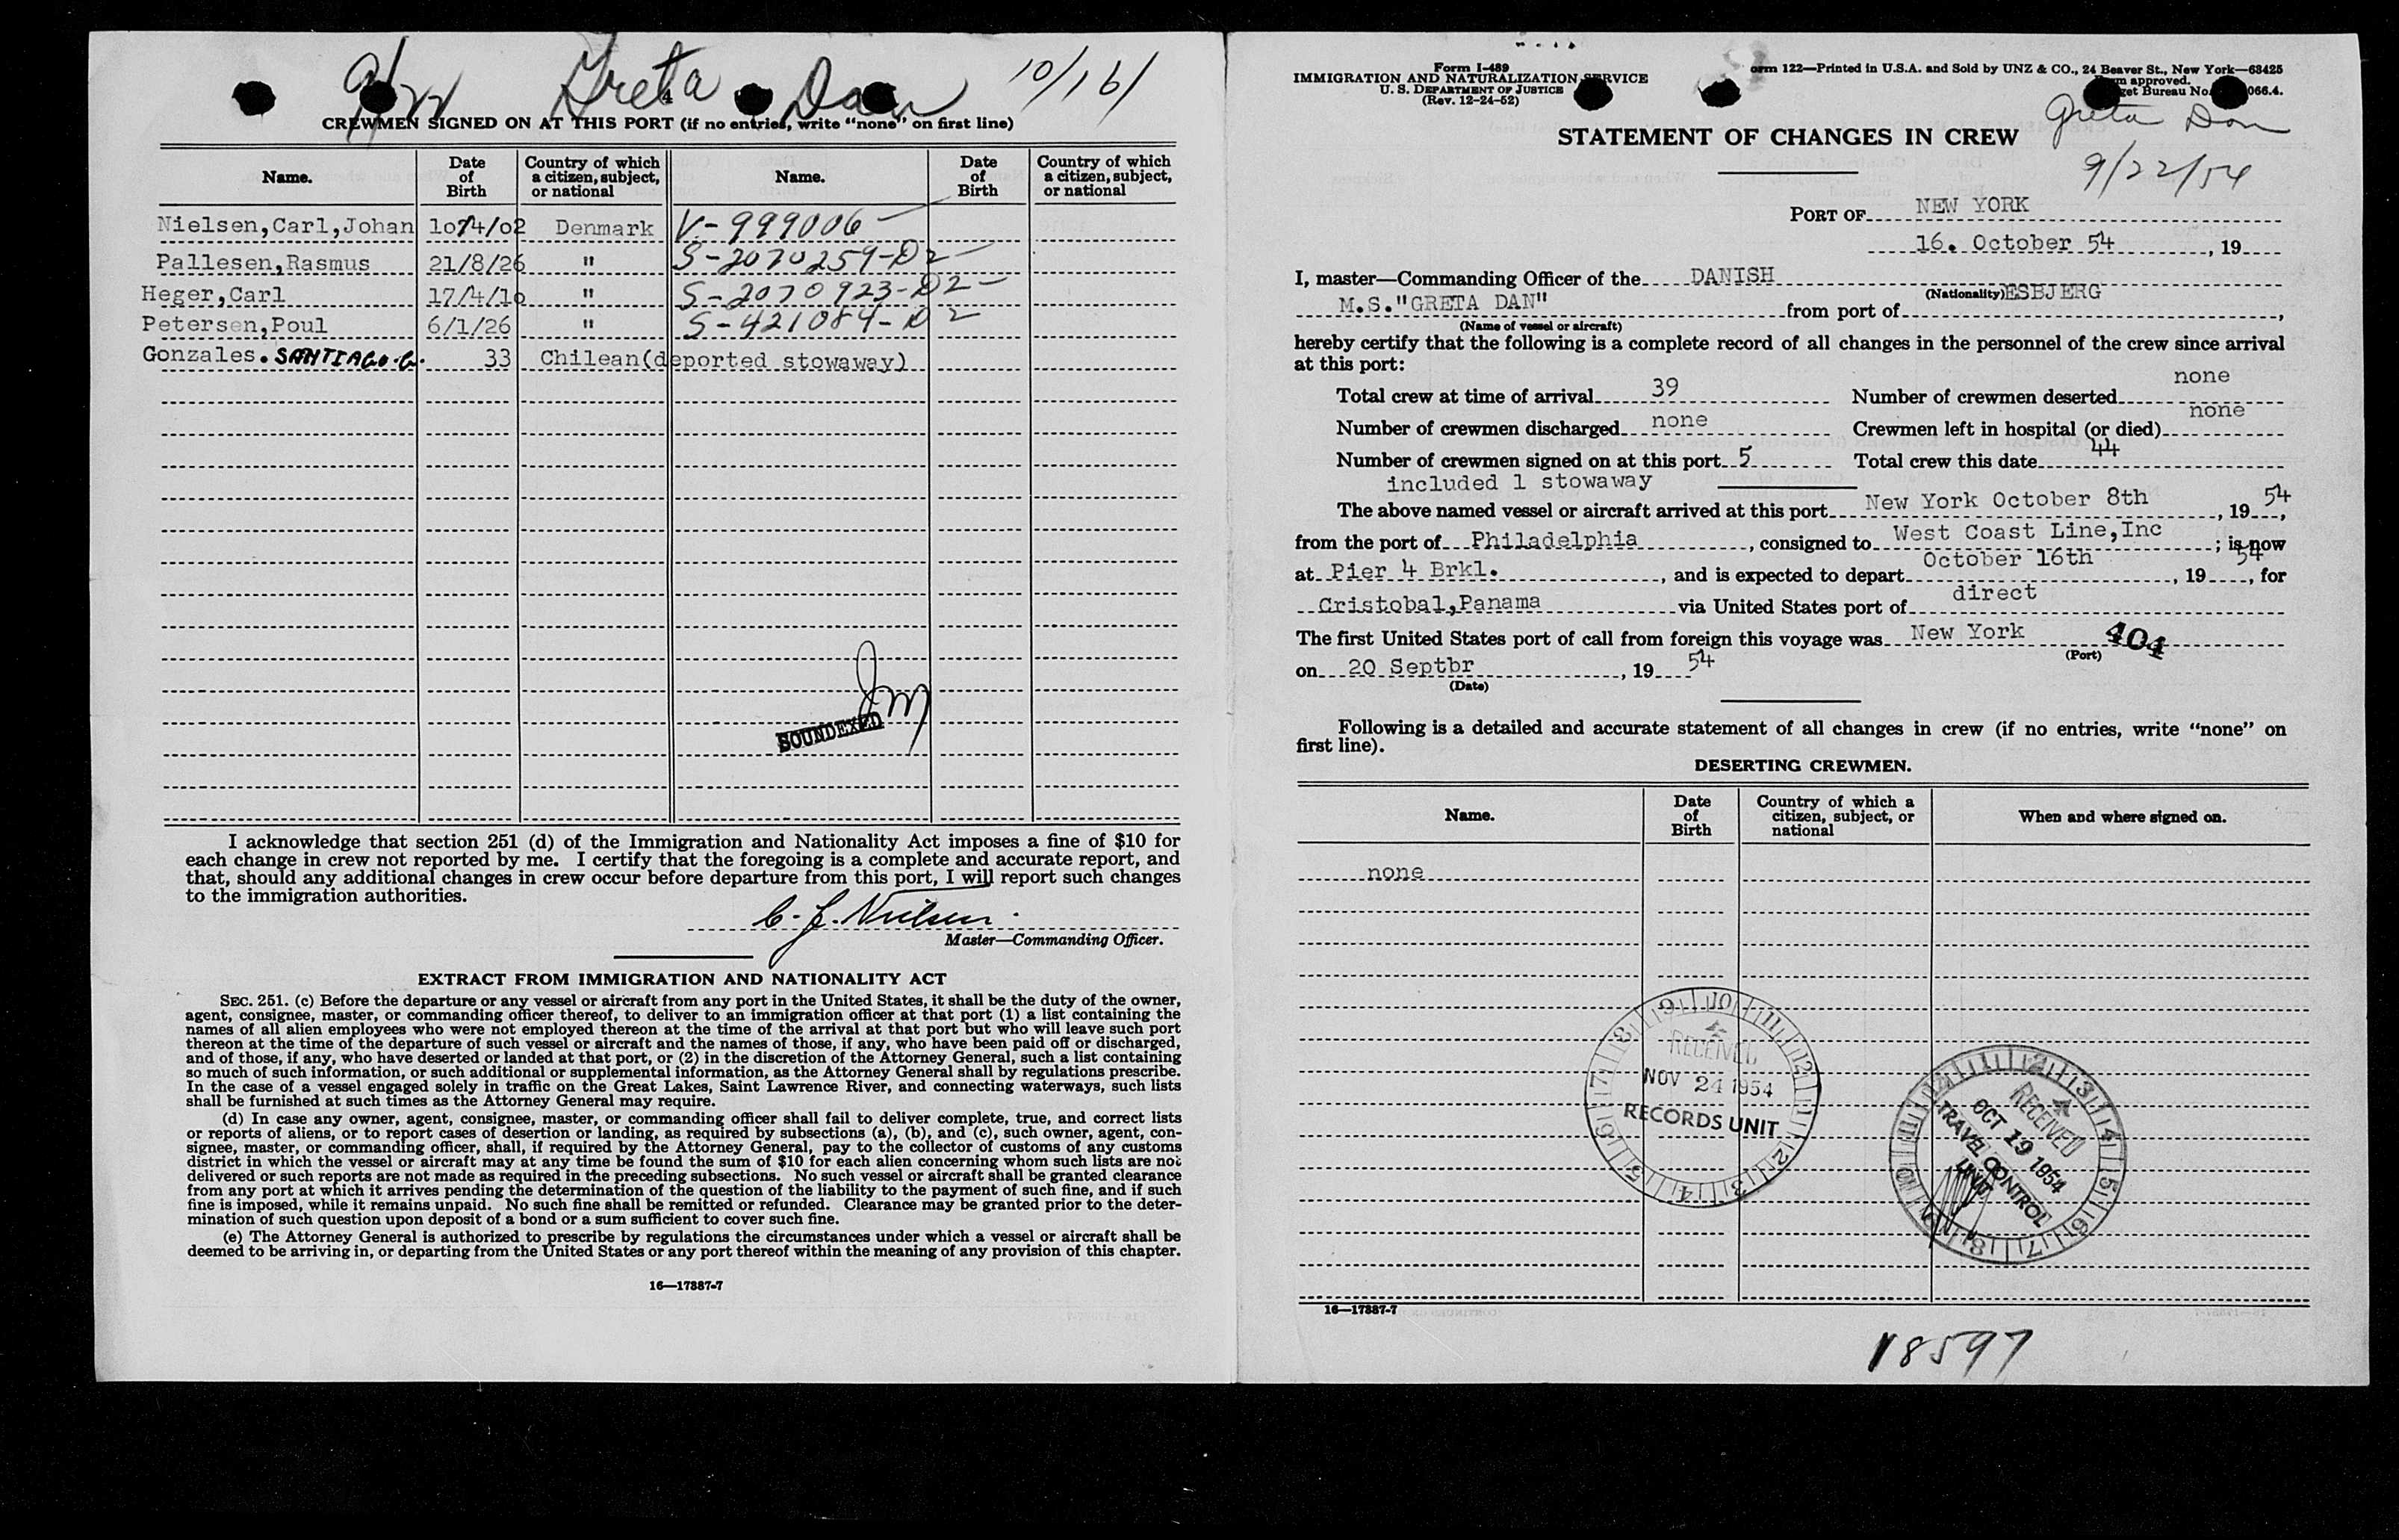 9/22 Greta Dan 10/16/
4
CREWMEN SIGNED ON AT THIS PORT (if no entries, write "none" on first line)
Name. Date of Birth Country of which a citizen, subject, or national Name. Date of Birth Country of which a citizen, subject, or national
Nielsen,Carl,Johan /02 Denmark V-999006
Pallesen,Rasmus 21/8/26 " S-2070259-D2
Heger,Carl 17/4/10 " S-2070923-D2
Petersen,Poul 6/1/26 " S-421084-D2
Gonzales. SANTIAGO.G. 33 Chilean(deported stowaway)
JM
SOUNDEXED
I acknowledge that section 251 (d) of the Immigration and Nationality Act imposes a fine of $10 for
each change in crew not reported by me. I certify that the foregoing is a complete and accurate report, and
that, should any additional changes in crew occur before departure from this port, I will report such changes
to the immigration authorities.
C. J. Nielsen.
Master—Commanding Officer.
EXTRACT FROM IMMIGRATION AND NATIONALITY ACT
SEC. 251. (c) Before the departure or any vessel or aircraft from any port in the United States, it shall be the duty of the owner,
agent, consignee, master, or commanding officer thereof, to deliver to an immigration officer at that port (1) a list containing the
names of all alien employees who were not employed thereon at the time of the arrival at that port but who will leave such port
thereon at the time of the departure of such vessel or aircraft and the names of those, if any, who have been paid off or discharged,
and of those, if any, who have deserted or landed at that port, or (2) in the discretion of the Attorney General, such a list containing
so much of such information, or such additional or supplemental information, as the Attorney General shall by regulations prescribe.
In the case of a vessel engaged solely in traffic on the Great Lakes, Saint Lawrence River, and connecting waterways, such lists
shall be furnished at such times as the Attorney General may require.
(d) In case any owner, agent, consignee, master, or commanding officer shall fail to deliver complete, true, and correct lists
or reports of aliens, or to report cases of desertion or landing, as required by subsections (a), (b), and (c), such owner, agent, con-
signee, master, or commanding officer, shall, if required by the Attorney General, pay to the collector of customs of any customs
district in which the vessel or aircraft may at any time be found the sum of $10 for each alien concerning whom such lists are not
delivered or such reports are not made as required in the preceding subsections. No such vessel or aircraft shall be granted clearance
from any port at which it arrives pending the determination of the question of the liability to the payment of such fine, and if such
fine is imposed, while it remains unpaid. No such fine shall be remitted or refunded. Clearance may be granted prior to the deter-
mination of such question upon deposit of a bond or a sum sufficient to cover such fine.
(e) The Attorney General is authorized to prescribe by regulations the circumstances under which a vessel or aircraft shall be
deemed to be arriving in, or departing from the United States or any port thereof within the meaning of any provision of this chapter.
16—17887-7
Form I-489
IMMIGRATION AND NATURALIZATION SERVICE
U. S. DEPARTMENT OF JUSTICE
(Rev. 12-24-52)
orm 122—Printed in U.S.A. and Sold by UNZ & CO., 24 Beaver St., New York—63425
m approved.
get Bureau No. 066.4.
Greta Dan
STATEMENT OF CHANGES IN CREW
9/22/54
PORT OF NEW YORK
16. October 54, 19
I, master—Commanding Officer of the DANISH
(Nationality)
M.S."GRETA DAN" from port of ESBJERG,
(Name of vessel or aircraft)
hereby certify that the following is a complete record of all changes in the personnel of the crew since arrival
at this port:
Total crew at time of arrival 39 Number of crewmen deserted none
Number of crewmen discharged none Crewmen left in hospital (or died) none
Number of crewmen signed on at this port 5 Total crew this date 44
included 1 stowaway
The above named vessel or aircraft arrived at this port New York October 8th, 19 54,
from the port of Philadelphia, consigned to West Coast Line,Inc; is now
at Pier 4 Brkl., and is expected to depart October 16th, 19 54, for
Cristobal,Panama via United States port of direct
The first United States port of call from foreign this voyage was New York 404
(Port)
on 20 Septbr, 19 54
(Date)
Following is a detailed and accurate statement of all changes in crew (if no entries, write "none" on
first line).
DESERTING CREWMEN.
Name. Date of Birth Country of which a citizen, subject, or national When and where signed on.
none
RECEIVED
NOV 24 1954
RECORDS UNIT
RECEIVED
OCT 19 1954
TRAVEL CONTROL
UNIT
16—17887-7
18597